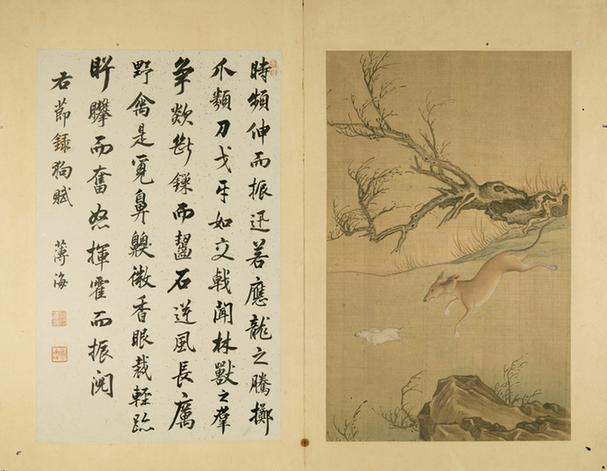 時頻伸而振迅若應龍之騰擲
爪類刀戈牙如交戟聞林獸之群
爭欻斷鏁而齧石逆風長厲
野禽是覓鼻齅微香眼裁輕跡
而奮怒揮霍而振
右節錄狗賦 薄海